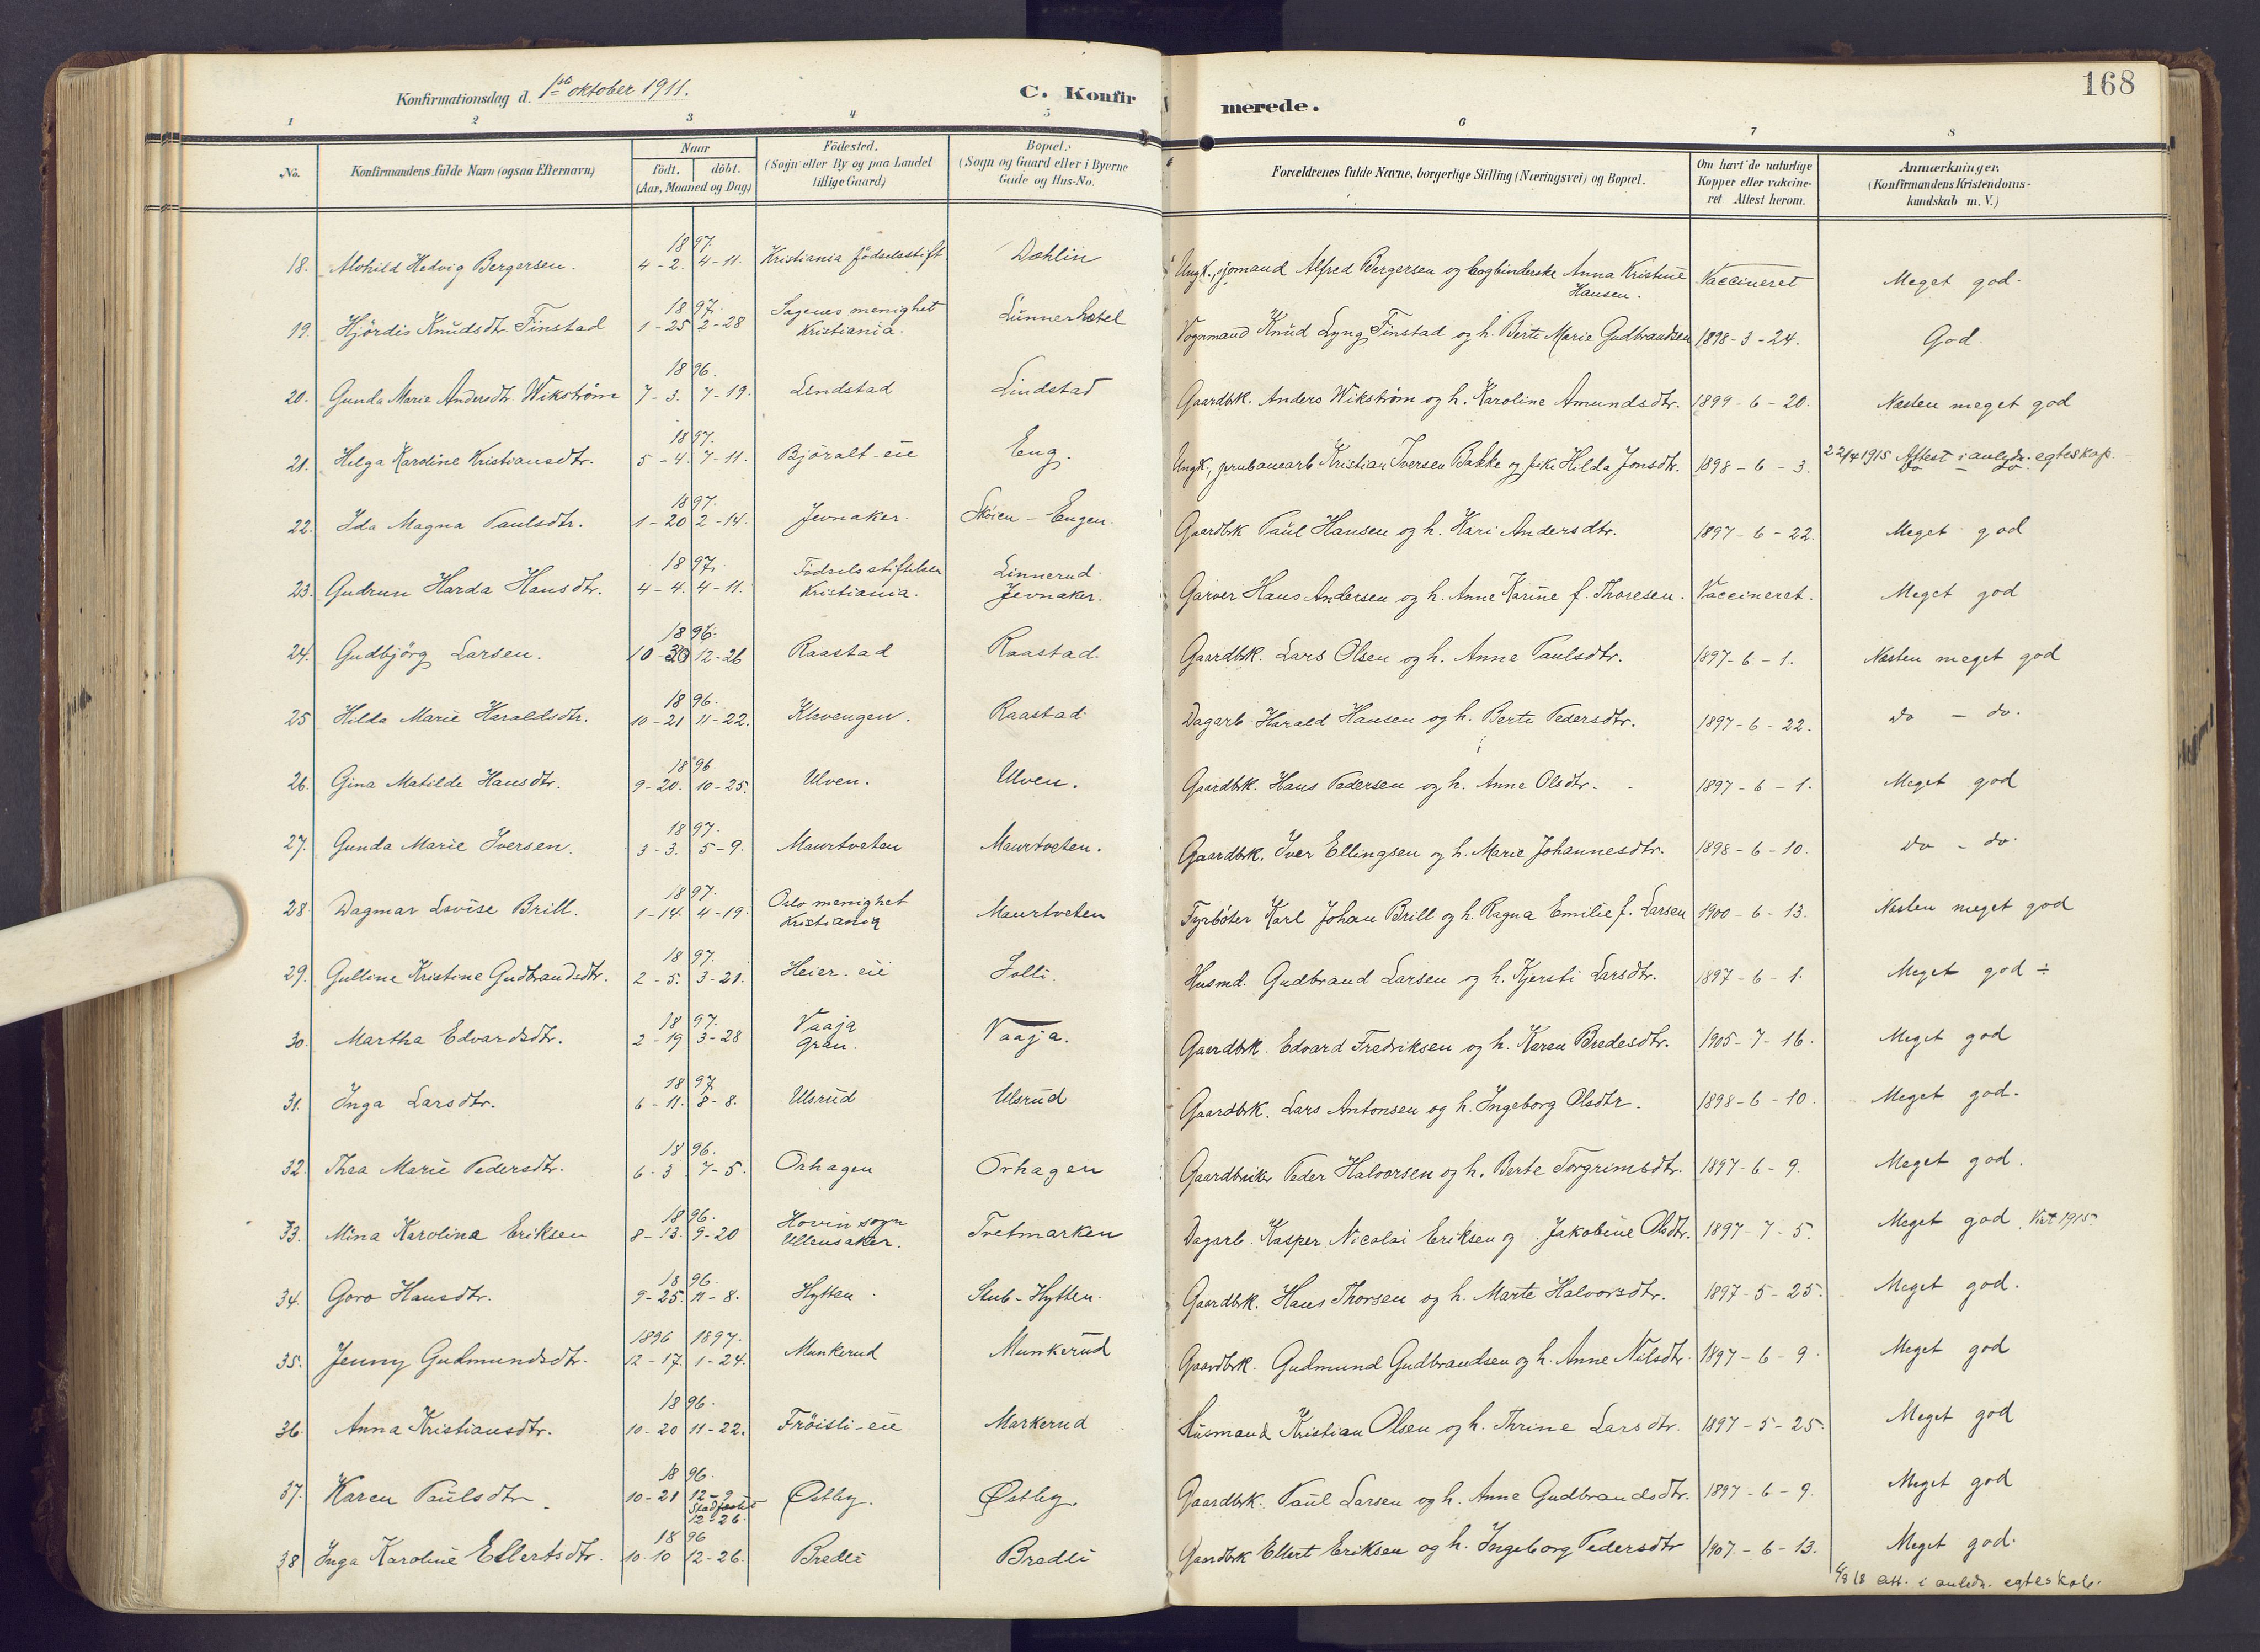 Konfirmationsdag d. 1ste oktober 1911. C. Konfirmerede. 168
1 2 3 4 5 6 7 8
No. Konfirmandens fulde Navn (ogsaa Efternavn) Naar födt. döbt. (Aar, Maaned og Dag) Födested. (Sogn eller By og paa Landet tillige Gaard) Bopæl. (Sogn og Gaard eller i Byerne Gade og Hus-No. Forældrenes fulde Navne, borgerlige Stilling (Næringsvei) og Bopæl. Om havt de naturlige Kopper eller vakcineret Attest herom. Anmærkninger. (Konfirmandens Kristendomskundskab m. V.)
1897.
18. Alvhild Hedvig Bergersen. 4-2. 4-11. Kristiania födselsstift Dæhlin Ungk., sjømand Alfred Bergersen og bogbinderske Anna Kristine Hansen. Vaccineret Meget god.
1897.
19. Hjördis Knudsdtr. Finstad 1-25 2-28 Sagenes menighet Kristiania. Lunnerhotel Vognmand Knud Lyng Finstad og h. Berte Marie Gudbrandsen 1898-3-24. God.
1896.
20. Gunda Marie Andersdtr. Wikström 7-3. 7-19. Lindstad Lindstad Gaardbk. Anders Wikström og h. Karoline Amundsdtr. 1899-6-20. Næsten meget god
1897.
21. Helga Karoline Kristiansdtr. 5-4. 7-11. Björalt-eie Eng. Ungk., grubearb. Kristian Iversen Bakke og pike Hilda Jonsdtr. 1898-6-3. 22/4 1915 Attest i anledn. egteskap. do - do.
1897.
22. Ida Magna Paulsdtr. 1-20 2-14. Jevnaker. Sköien-Engen. Gaardbrk Paul Hansen og h. Kari Andersdtr. 1897-6-22. Meget god
1897.
23. Gudrun Harda Hansdtr. 4-4. 4-11. Födselsstiftelsen Kristiania. Linnerud. Jevnaker. Garver Hans Andersen og h. Anne Karine f. Thoresen. Vaccineret. Meget god
1896.
24. Gudbjörg Larsen. 10-30 12-26 Raastad Raastad. Gaardbk. Lars Olsen og h. Anne Paulsdtr. 1897-6-1. Næsten meget god
1896.
25 Hilda Marie Haraldsdtr. 10-21 11-22. Klevengen. Raastad Dagarb. Harald Hansen og h. Berte Pedersdtr. 1897-6-22. do - do.
1896.
26. Gina Matilde Hansdtr. 9-20. 10-25. Ulven. Ulven. Gaardbk. Hans Pedersen og h. Anne Olsdtr. 1897-6-1. Meget god
1897.
27. Gunda Marie Iversen. 3-3. 5-9. Maurtveten Maurtveten. Gaardbk. Iver Ellingsen og h. Marie Johannesdtr. 1898-6-10. do - do.
1897.
28. Dagmar Lovise Brill. 1-14. 4-19. Oslo menighet Kristiania Maurtveten Fyrböter Karl Johan Brill og h. Ragna Emilie f. Larsen 1900-6-13. Næsten meget god
1897.
29. Gulline Kristine Gudbrandsdtr. 2-5. 3-21. Heier-eie Solli. Husmd. Gudbrand Larsen og h. Kjersti Larsdtr. 1897-6-1. Meget god ÷
1897.
30. Martha Edvardsdtr. 2-19 3-28 Vaaja Gran. Vaaja. Gaardbk. Edvard Fredriksen og h. Karen Bredesdtr. 1905-7-16. Meget god
1897
31. Inga Larsdtr. 6-11. 8-8. Ulsrud Ulsrud Gaardbk. Lars Antonsen og h. Ingeborg Olsdtr. 1898-6-10. Meget god.
1896.
32. Thea Marie Pedersdtr. 6-3 7-5. Orhagen Orhagen Gaardbruker Peder Halvorsen og h. Berte Torgrimsdtr. 1897-6-9. Meget god.
1896.
33. Mina Karolina Eriksen 8-13. 9-20 Hovin sogn Ullensaker. Tvetmarken Dagarb. Kasper Nicolai Eriksen og Jakobine Olsdtr. 1897-7-5. Meget god. 1915.
1896.
34. Goro Hansdtr. 9-25. 11-8. Hytten. Stub-Hytten. Gaardbk. Hans Thorsen og h. Marte Halvorsdtr. 1897-5-25. Meget god.
1896 1897.
35. Jenny Gudmundsdtr. 12-17. 1-24. Munkerud Munkerud Gaardbrk. Gudmund Gudbrandsen og h. Anne Nilsdtr. 1897-6-9. Meget god
1896.
36. Anna Kristiansdtr. 10-20 11-22. Fröisli-eie Markerud Husmand Kristian Olsen og h. Thrine Larsdtr. 1897-5-25. Meget god
1896.
37. Karen Paulsdtr. 10-21 12-9 Stadfæstet 12-26. Østby. Østby. Gaardbk. Paul Larsen og h. Anne Gudbrandsdtr. 1897-6-9. Meget god
1896
38 Inga Karoline Ellertsdtr. 10-10 12-26. Bredli Bredli Gaardbrk Ellert Eriksen og h. Ingeborg Pedersdtr 1907-6-13. Meget god.
18 att. i anledn. egteskab.